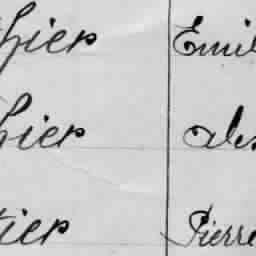 hier Emil
hier Alex
tier Pierre